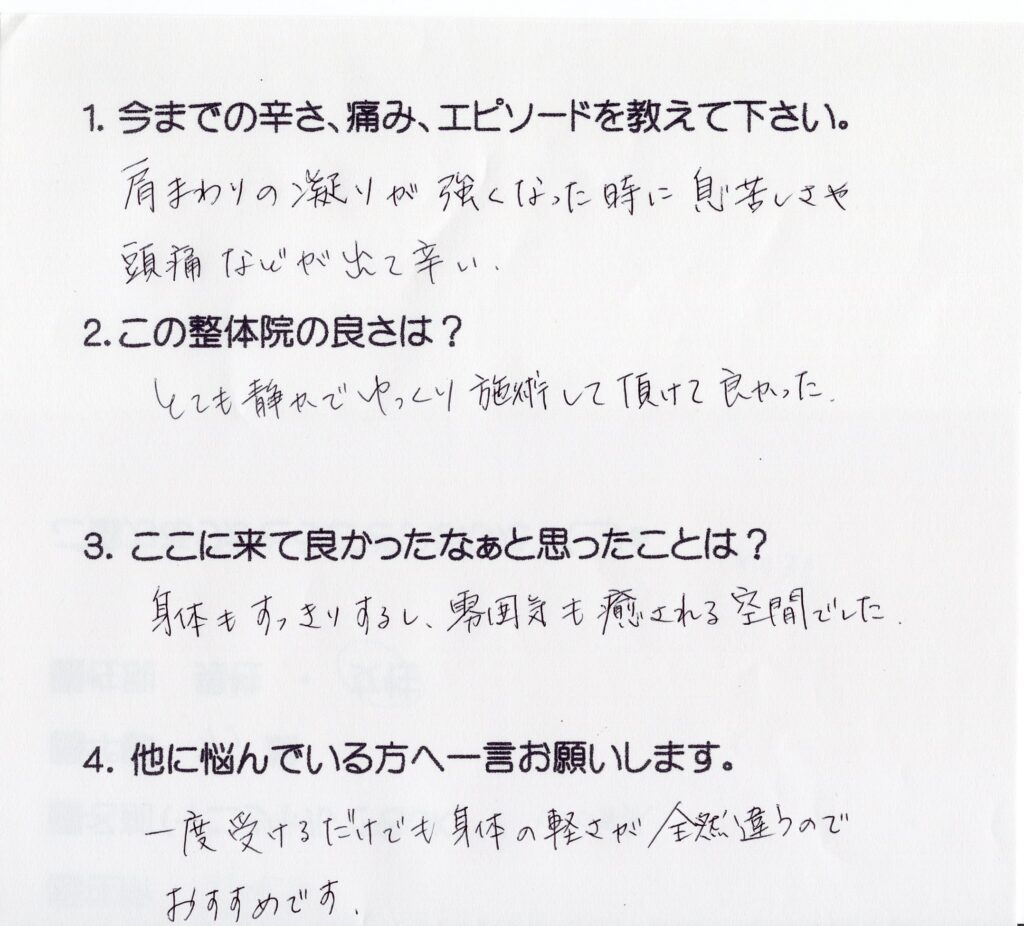 1. 今までの辛さ、痛み、エピソードを教えて下さい。
肩まわりの凝りが強くなった時に息苦しさや
頭痛などが出て辛い.
2. この整体院の良さは？
とても静かでゆっくり施術して頂けて良かった.
3. ここに来て良かったなぁと思ったことは？
身体もすっきりするし、雰囲気も癒される空間でした.
4. 他に悩んでいる方へ一言お願いします。
一度受けるだけでも身体の軽さが全然違うので
おすすめです.